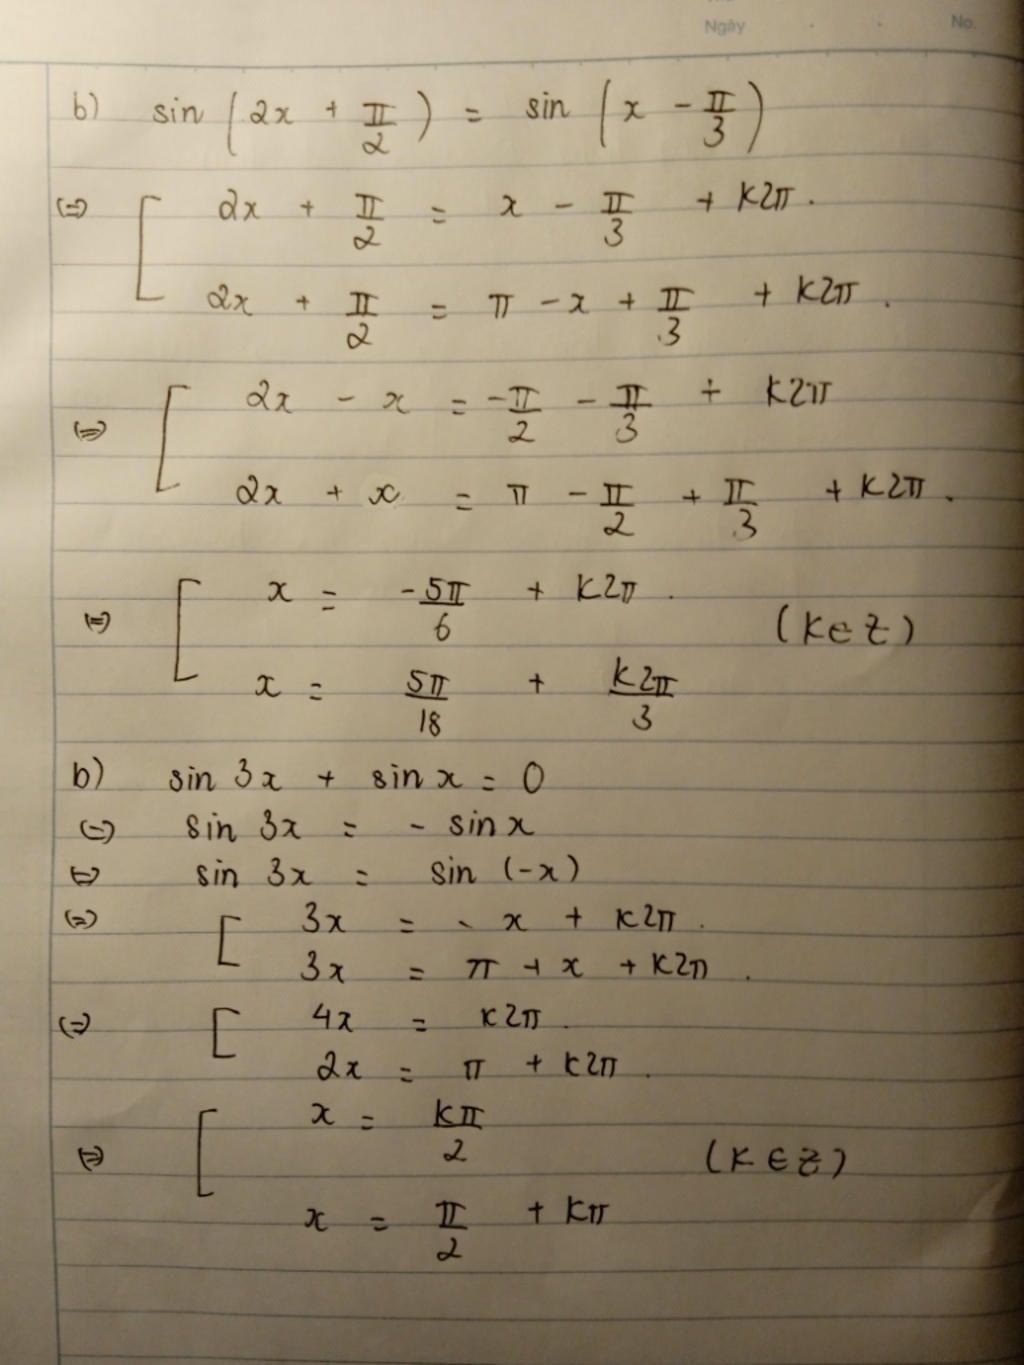 Ngày No.
b) sin (2x + π/2) = sin (x - π/3)
(=) [ 2x + π/2 = x - π/3 + k2π.
2x + π/2 = π - x + π/3 + k2π.
(=) [ 2x - x = -π/2 - π/3 + k2π
2x + x = π - π/2 + π/3 + k2π.
(=) [ x = -5π/6 + k2π. (k∈Z)
x = 5π/18 + k2π/3
b) sin 3x + sin x = 0
(=) sin 3x = - sin x
(=) sin 3x = sin (-x)
(=) [ 3x = - x + k2π.
3x = π + x + k2π.
(=) [ 4x = k2π.
2x = π + k2π.
(=) [ x = kπ/2 (k∈Z)
x = π/2 + kπ